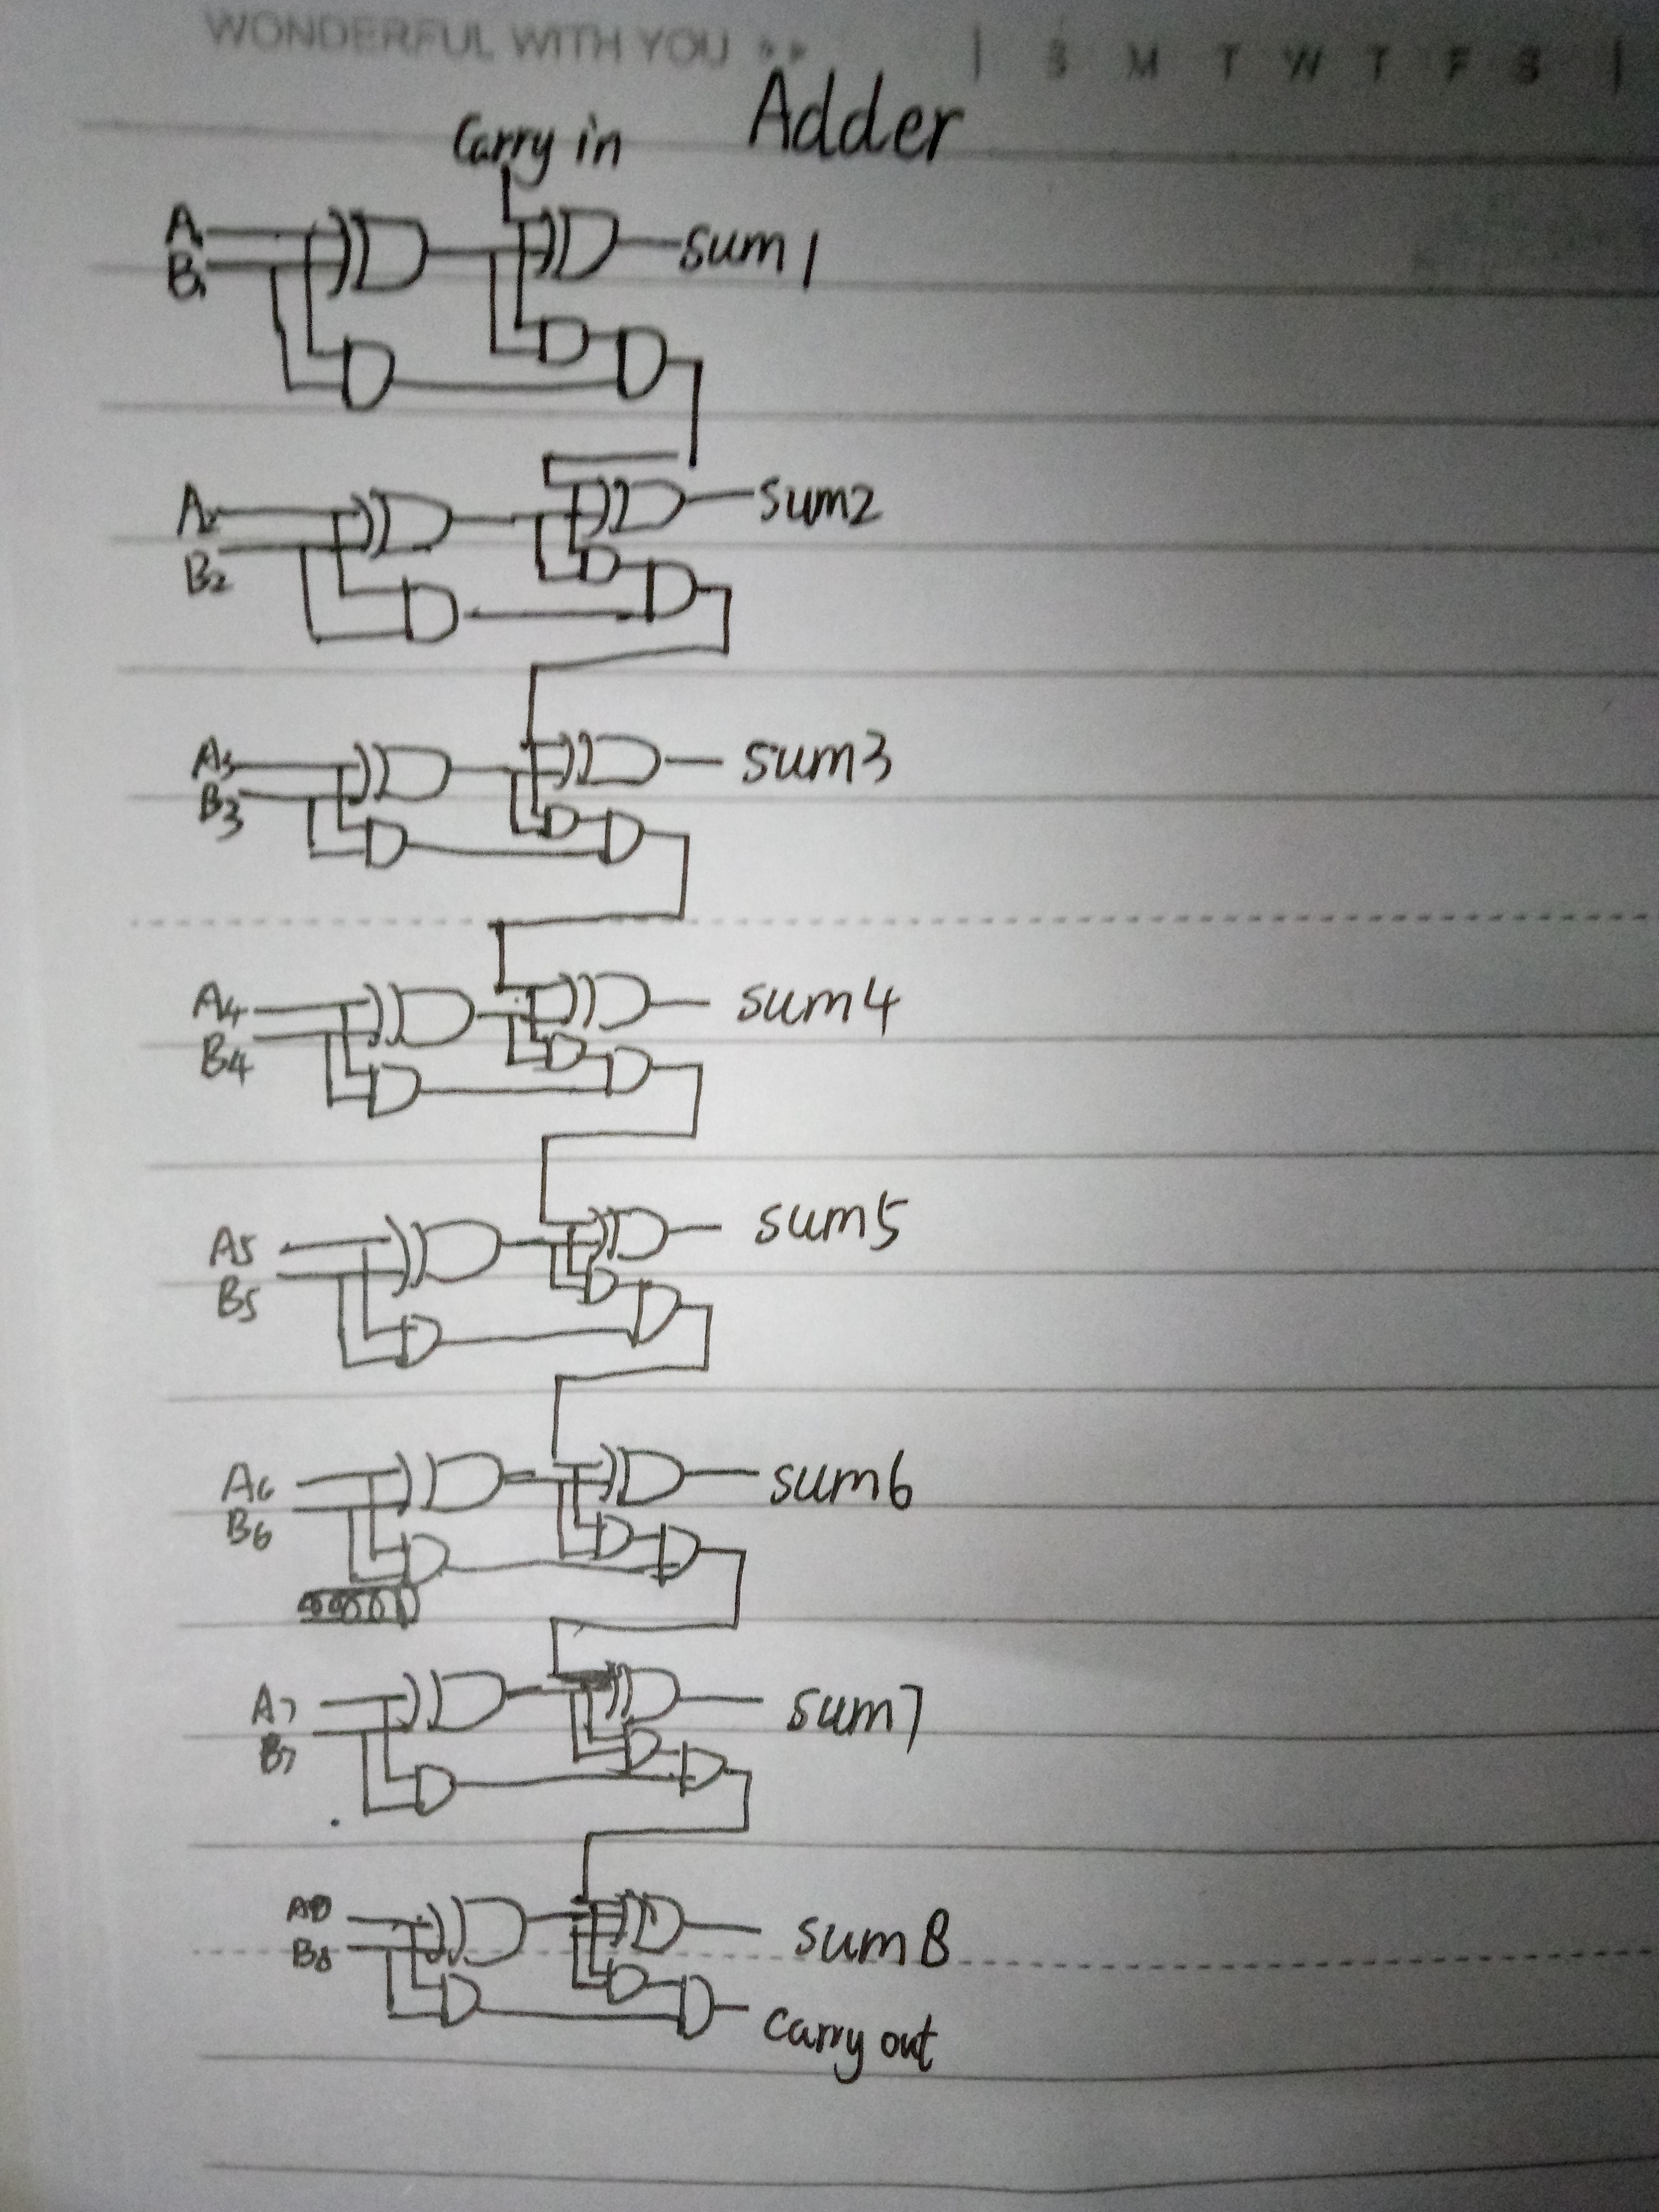 WONDERFUL WITH YOU
S M T W T F S
Adder
Carry in
A1
B1
sum1
A2
B2
sum2
A3
B3
sum3
A4
B4
sum4
A5
B5
sum5
A6
B6
sum6
A7
B7
sum7
A8
B8
sum8
Carry out